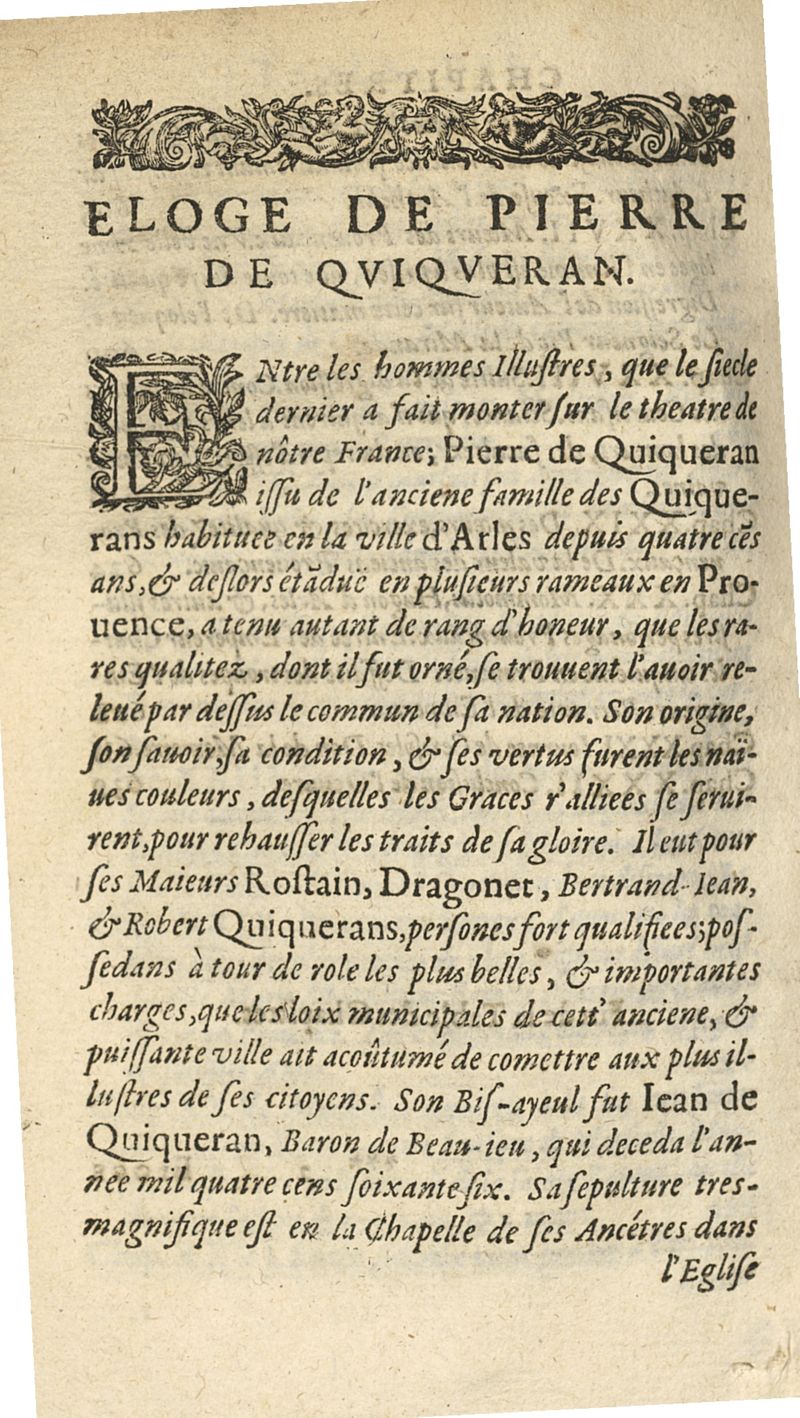 ELOGE DE PIERRE
DE QVIQVERAN.
ENtre les hommes Illuſtres, que le ſiecle
dernier a fait monter ſur le theatre de
nôtre France; Pierre de Quiqueran
iſſu de l'anciene famille des Quique-
rans habituee en la ville d'Arles depuis quatre cẽs
ans, & deſlors étãduë en pluſieurs rameaux en Pro-
uence, a tenu autant de rang d'honeur, que les ra-
res qualitez, dont il fut orné, ſe trouuent l'auoir re-
leué par deſſus le commun de ſa nation. Son origine,
ſon ſauoir, ſa condition, & ſes vertus furent les naï-
ues couleurs, deſquelles les Graces r'alliees ſe ſerui-
rent, pour rehauſſer les traits de ſa gloire. Il eut pour
ſes Maieurs Roſtain, Dragonet, Bertrand-Iean,
& Robert Quiquerans, perſones fort qualifiees; poſ-
ſedans à tour de role les plus belles, & importantes
charges, que les loix municipales de cett' anciene, &
puiſſante ville ait acoûtumé de comettre aux plus il-
luſtres de ſes citoyens. Son Biſ-ayeul fut Iean de
Quiqueran, Baron de Beau-ieu, qui deceda l'an-
nee mil quatre cens ſoixante ſix. Sa ſepulture tres-
magnifique eſt en la Chapelle de ſes Ancétres dans
l'Egliſe